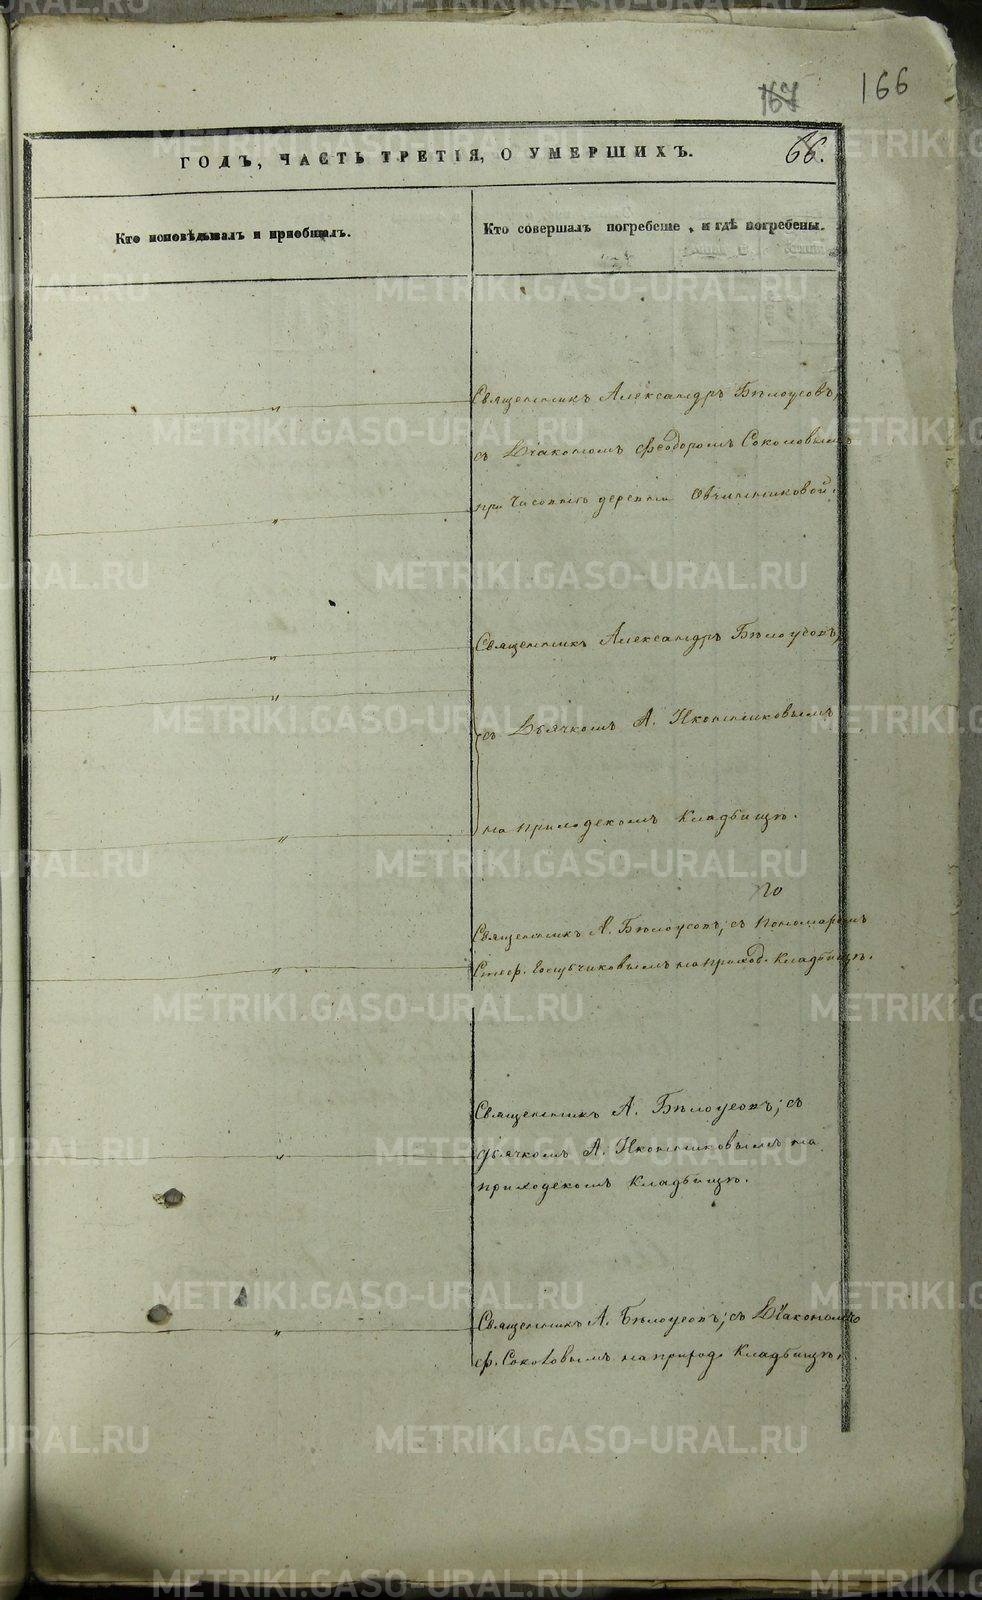 166
167
66.
ГОДЪ, ЧАСТЬ ТРЕТІЯ, О УМЕРШИХЪ.
Кто исповѣдывалъ и приобщалъ.
Кто совершалъ погребеніе, и гдѣ погребены.
Священникъ Александръ Бѣлоусовъ,
съ Діакономъ Феодоромъ Соколовымъ
при Часовнѣ деревни Овчинниковой.
Священникъ Александръ Бѣлоусовъ,
съ Дьячкомъ А. Иконниковымъ
на приходскомъ Кладбищѣ.
Священникъ А. Бѣлоусовъ; съ Пономаремъ
на приход. Кладбищѣ.
Священникъ А. Бѣлоусовъ; съ
дьячкомъ А. Иконниковымъ на
приходскомъ Кладбищѣ.
Священникъ А. Бѣлоусовъ; съ Діакономъ
Ф. Соколовымъ на приход. Кладбищѣ.
METRIKI.GASO-URAL.RU